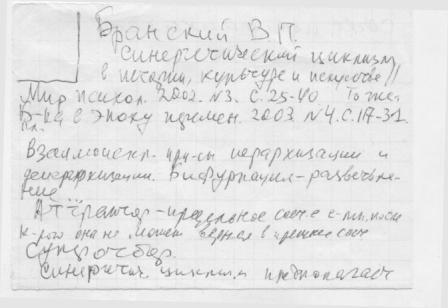 Бранский В.П.
Синергетический циклизм
в                культуре и искусстве //
Мир психол. 2002. №3. С.25-40 То же.
Б-ка в эпоху        2003 №4. С.17-31.
Взаимоискл. пр-сы иерархизации и
деиерархизации. Бифуркация - разветвле-
ние
Аттрактор - предельное сост-е с-мы, после
к-рого она не может верн-ся в прежнее сост
Суператтр.
Синергетич циклизм предполагает